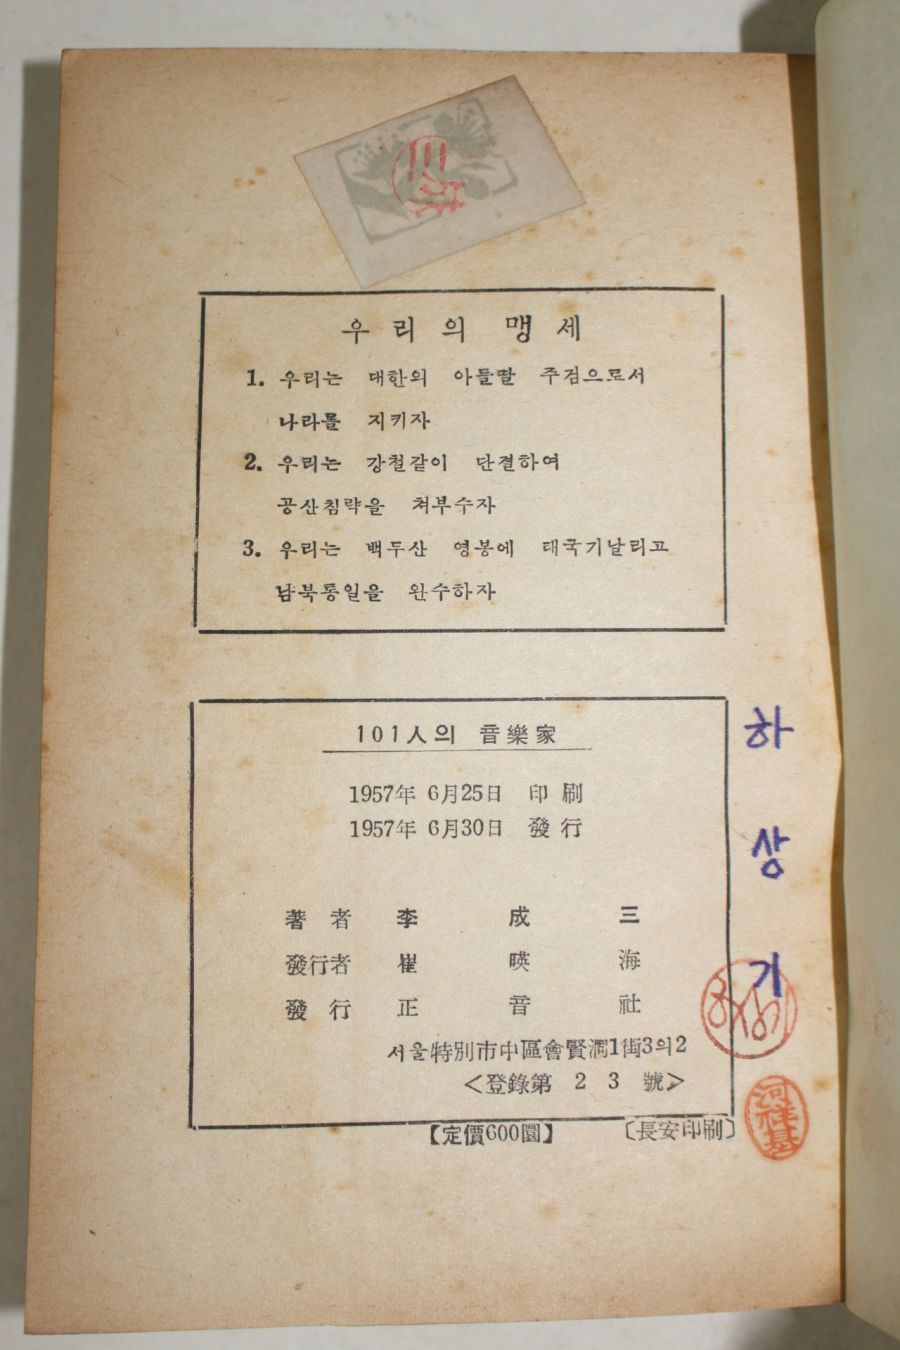 우리의 맹세
1. 우리는 대한의 아들딸 주검으로서
나라를 지키자
2. 우리는 강철같이 단결하여
공산침략을 쳐부수자
3. 우리는 백두산 영봉에 태극기날리고
남북통일을 완수하자
101人의 音樂家
1957年 6月25日 印刷
1957年 6月30日 發行
著者 李成三
發行者 崔暎海
發行 正音社
서울特別市中區會賢洞1街3의2
<登錄第 2 3 號>
【定價600圜】 〔長安印刷〕
하상기
하상기
河祥基